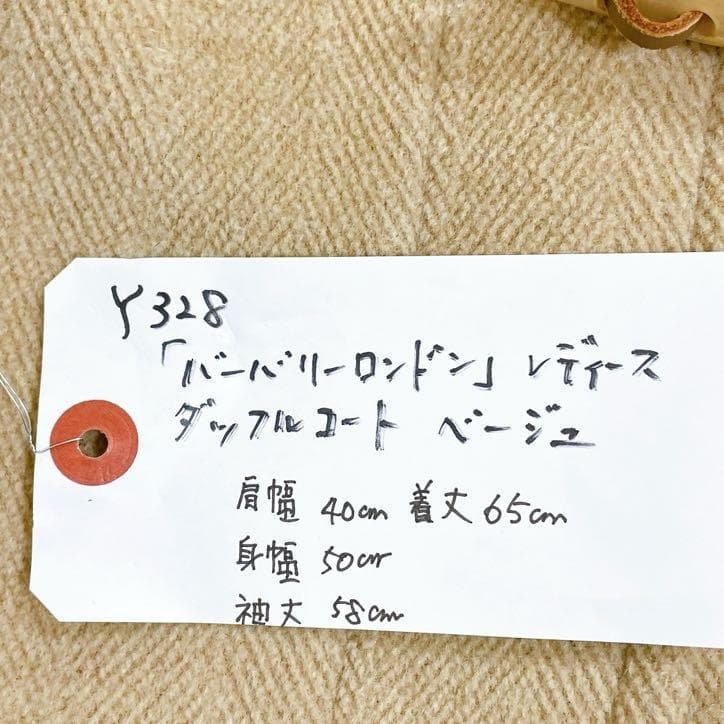 Y328
「バーバリーロンドン」 レディース
ダッフルコート ベージュ
肩幅 40cm 着丈 65cm
身幅 50cm
袖丈 58cm